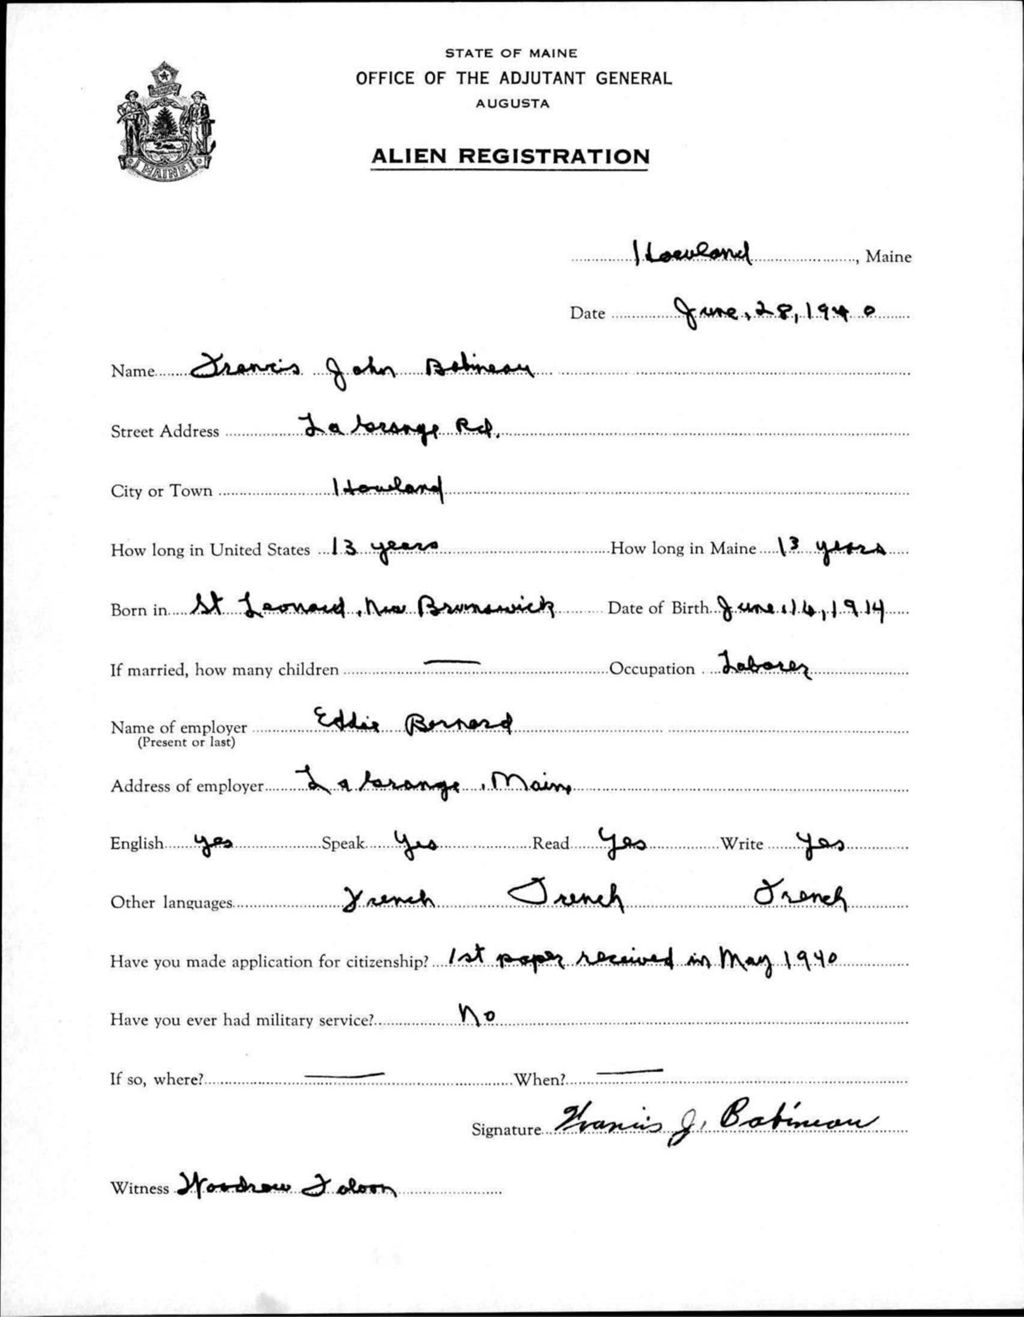 STATE OF MAINE
OFFICE OF THE ADJUTANT GENERAL
AUGUSTA
ALIEN REGISTRATION
MAINE
Howland, Maine
Date June, 28, 1940
Name Francis John Babineau
Street Address La Grange Rd.
City or Town Howland
How long in United States 13 years How long in Maine 13 years
Born in St Leonard, New Brunswick Date of Birth June, 14, 1914
If married, how many children — Occupation Laborer
Name of employer Eddie Bernard
(Present or last)
Address of employer La Grange, Maine
English yes Speak Yes Read Yes Write Yes
Other languages French French French
Have you made application for citizenship? 1st paper received in May 1940
Have you ever had military service? No
If so, where? — When? —
Signature Francis J. Babineau
Witness Woodrow